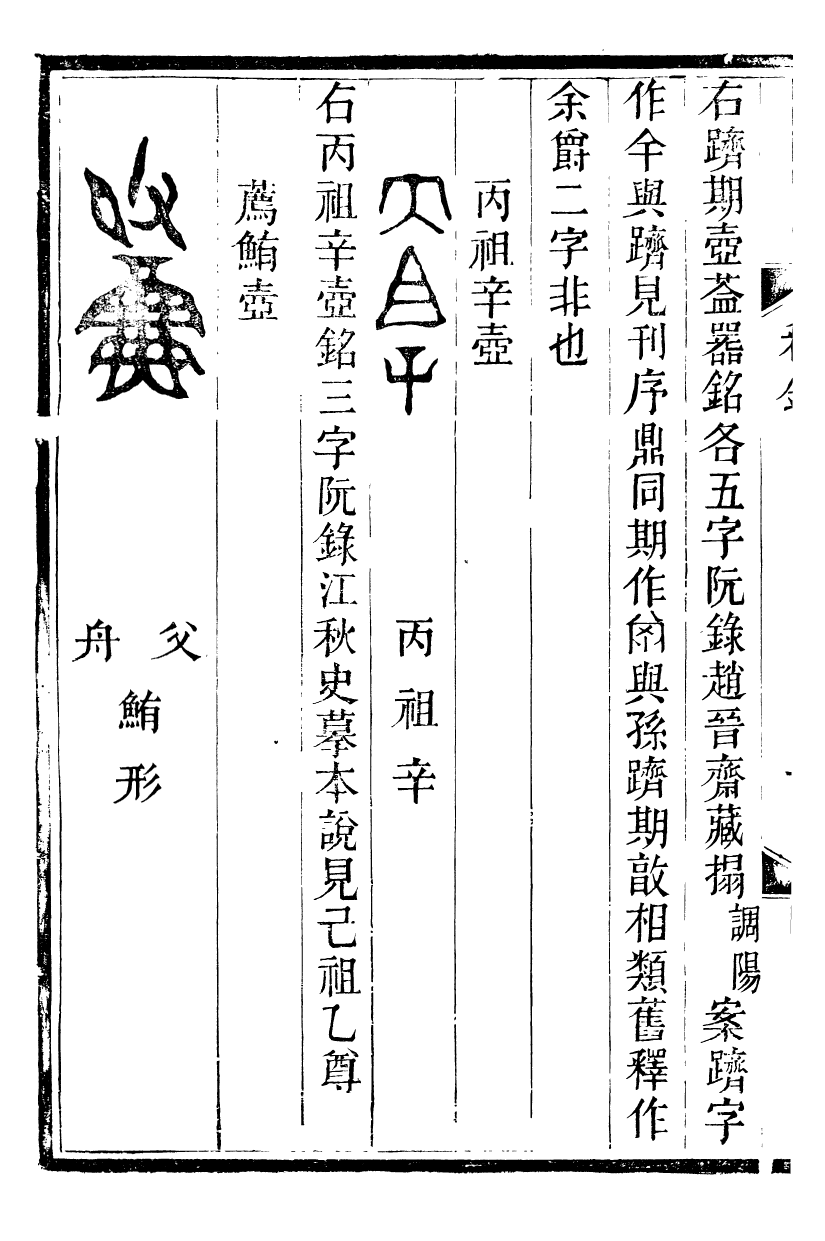 右躋期壺葢器銘各五字阮錄趙晉齋藏搨調陽案躋字
作𠂹與躋見刊序鼎同期作與孫躋期敔相類舊釋作
余爵二字非也
丙祖辛壺
丙祖辛
右丙祖辛壺銘三字阮錄江秋史摹本說見己祖乙尊
薦鮪壺
父
舟
鮪形